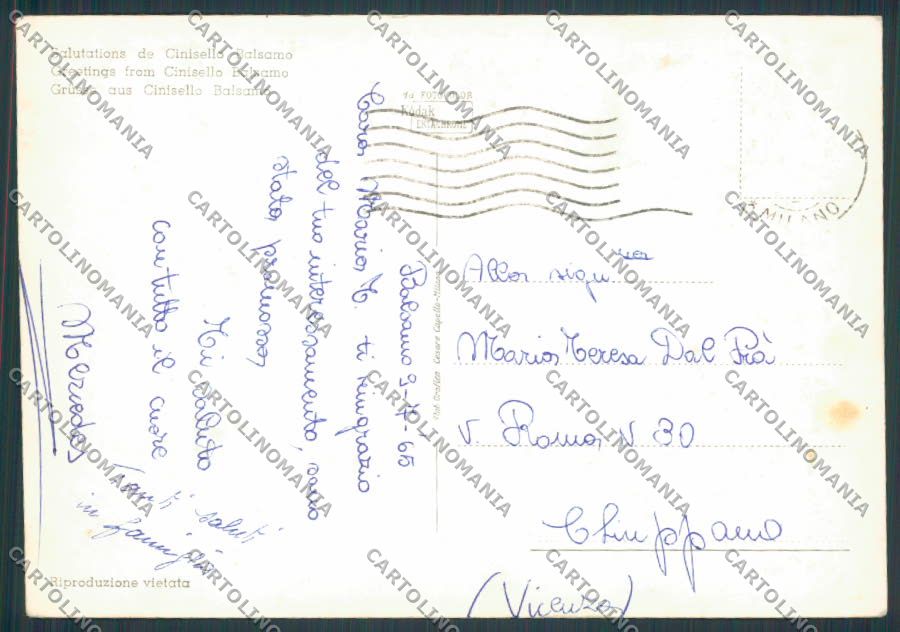 Salutations de Cinisello Balsamo
Greetings from Cinisello Balsamo
Grüsse aus Cinisello Balsamo
da FOTOCOLOR
Kodak
EKTACHROME
MILANO
Balsamo 9-7-65
Cara Maria T. ti ringrazio
del tuo interessamento, sono
stata promossa
Ti saluto
con tutto il cuore
Mercedes
Tanti saluti
in famiglia
Alla sign.na
Maria Teresa Dal Prà
V. Roma N 30
Chiuppano
(Vicenza)
Riproduzione vietata
CARTOLINOMANIA